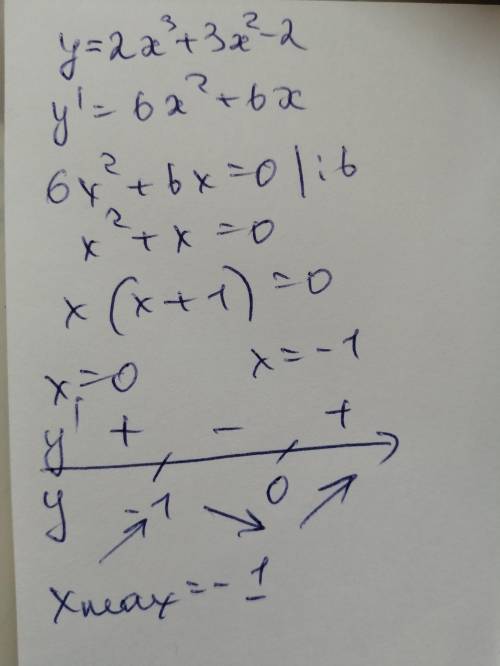 y=2x³+3x²-2
y'=6x²+6x
6x²+6x=0 |:6
x²+x=0
x(x+1)=0
x=0 x=-1
y' + - +
y -1 0
xmax=-1